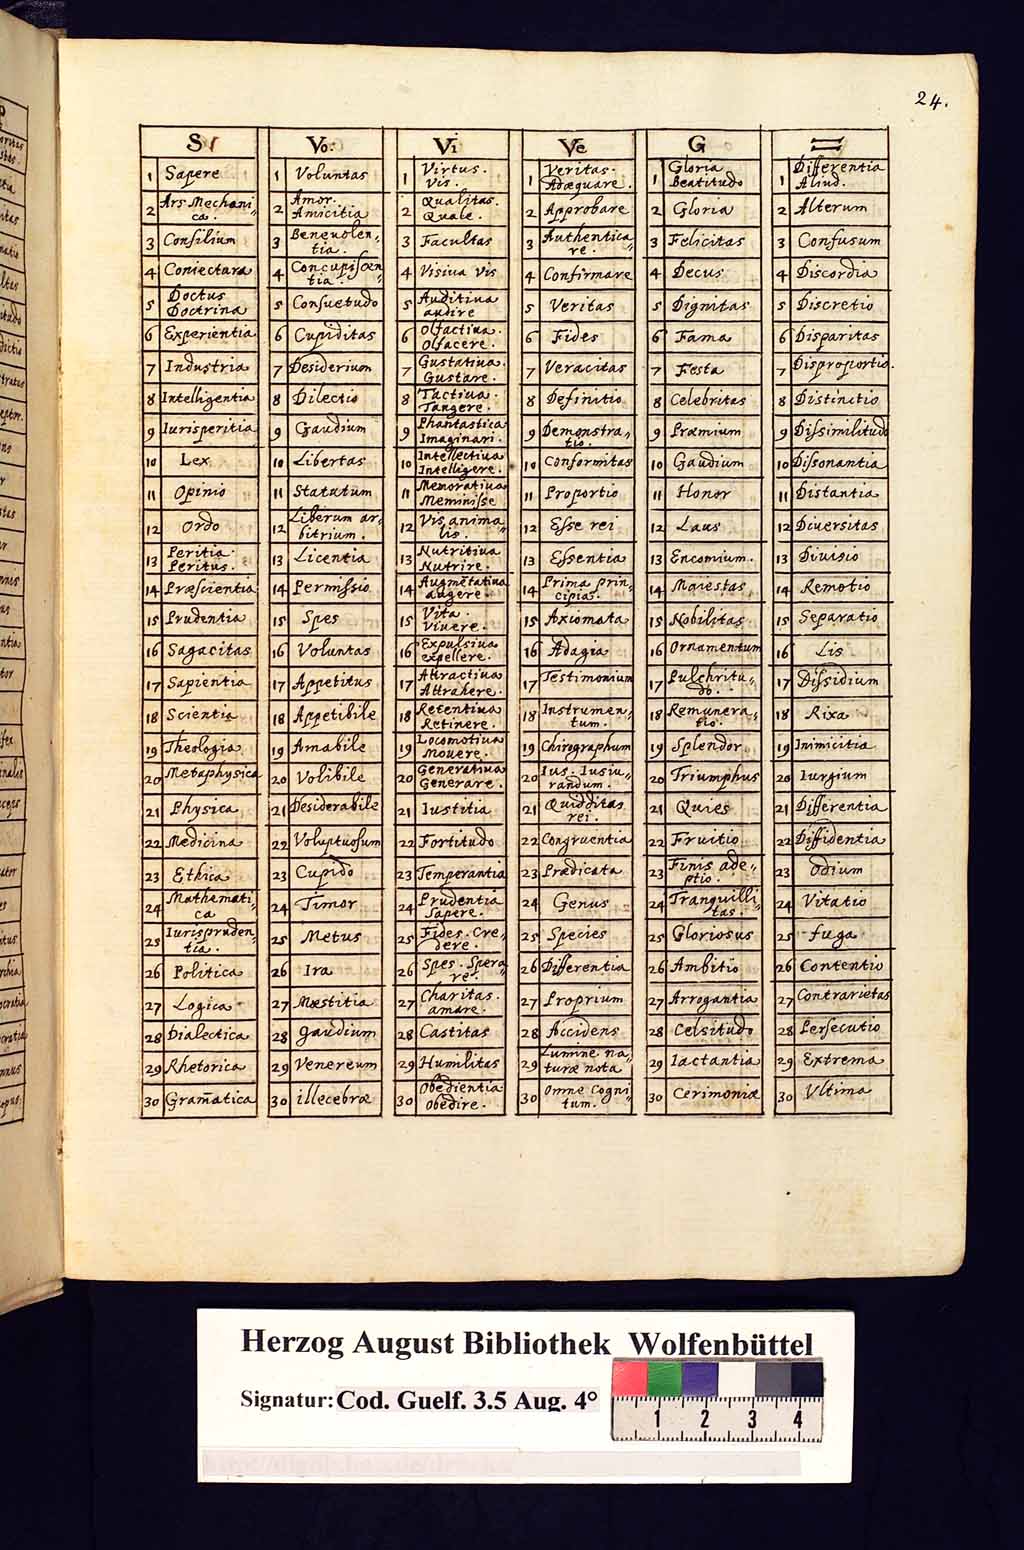 24.
S
1 Sapere
2 Ars Mechani,,
ca.
3 Consilium
4 Coniectara
5 Doctus
Doctrina
6 Experientia
7 Industria
8 Intelligentia
9 Iurisperitia
10 Lex
11 Opinio
12 Ordo
13 Peritia.
Peritus.
14 Præscientia
15 Prudentia
16 Sagacitas
17 Sapientia
18 Scientia
19 Theologia
20 Metaphysica
21 Physica
22 Medicina
23 Ethica
24 Mathemati,,
ca
25 Iurispruden,,
tia.
26 Politica
27 Logica
28 Dialectica
29 Rhetorica
30 Gram̄atica
Vo:
1 Voluntas
2 Amor.
Amicitia
3 Beneuolen,,
tia.
4 Concupiscen,,
tia.
5 Consuetudo
6 Cupiditas
7 Desiderium
8 Dilectio
9 Gaudium
10 Libertas
11 Statutum
12 Liberum ar,,
bitrium.
13 Licentia
14 Permissio
15 Spes
16 Voluntas
17 Appetitus
18 Appetibile
19 Amabile
20 Volibile
21 Desiderabile
22 Voluptuosum
23 Cupido
24 Timor
25 Metus
26 Ira
27 Mæstitia
28 Gaudium
29 Venereum
30 illecebræ
Vi
1 Virtus.
Vis.
2 Qualitas.
Quale.
3 Facultas
4 Visiua vis
5 Auditiua
audire
6 Olfactiua.
Olfacere.
7 Gustatiua.
Gustare.
8 Tactiua.
Tangere.
9 Phantastica
Imaginari.
10 Intellectiua
Intelligere.
11 Memoratiua
Meminisse
12 Vis anima,,
lis.
13 Nutritiua
Nutrire.
14 Augmētatiua
augere.
15 Vita.
Viuere.
16 Expulsiua
expellere.
17 Attractiua
Attrahere.
18 Retentiua
Retinere.
19 Locomotiua
Mouere.
20 Generatiua
Generare.
21 Iustitia
22 Fortitudo
23 Temperantia
24 Prudentia
Sapere.
25 Fides. Cre,,
dere.
26 Spes. Spera,,
re.
27 Charitas.
amare.
28 Castitas
29 Humilitas
30 Obedientia
Obedire.
Ve
1 Veritas.
Adæquare.
2 Approbare
3 Authentica,,
re.
4 Confirmare
5 Veritas
6 Fides
7 Veracitas
8 Definitio
9 Demonstra,,
tio.
10 Conformitas
11 Proportio
12 Esse rei
13 Essentia
14 Prima prin,,
cipia.
15 Axiomata
16 Adagia
17 Testimonium
18 Instrumen,,
tum.
19 Chirographum
20 Ius. Iusiu,,
randum.
21 Quidditas
rei.
22 Congruentia
23 Prædicata
24 Genus
25 Species
26 Differentia
27 Proprium
28 Accidens
29 Lumine na,,
turæ nota
30 Omne Cogni,,
tum.
G
1 Gloria
Beatitudo
2 Gloria
3 Felicitas
4 Decus
5 Dignitas
6 Fama
7 Festa
8 Celebritas
9 Præmium
10 Gaudium
11 Honor
12 Laus
13 Encomium.
14 Maiestas
15 Nobilitas
16 Ornamentum
17 Pulchritu,,
do.
18 Remunera,,
tio.
19 Splendor
20 Triumphus
21 Quies
22 Fruitio
23 Finis ade,,
ptio.
24 Tranquilli,,
tas.
25 Gloriosus
26 Ambitio
27 Arrogantia
28 Celsitudo
29 Iactantia
30 Cerimoniæ
=
1 Differentia
Aliud.
2 Alterum
3 Confusum
4 Discordia
5 Discretio
6 Disparitas
7 Disproportio.
8 Distinctio
9 Dissimilitudo
10 Dissonantia
11 Distantia
12 Diuersitas
13 Diuisio
14 Remotio
15 Separatio
16 Lis
17 Dissidium
18 Rixa
19 Inimicitia
20 Iurgium
21 Differentia
22 Diffidentia
23 Odium
24 Vitatio
25 fuga
26 Contentio
27 Contrarietas
28 Persecutio
29 Extrema
30 Vltima
Herzog August Bibliothek Wolfenbüttel
Signatur: Cod. Guelf. 3.5 Aug. 4°
1 2 3 4